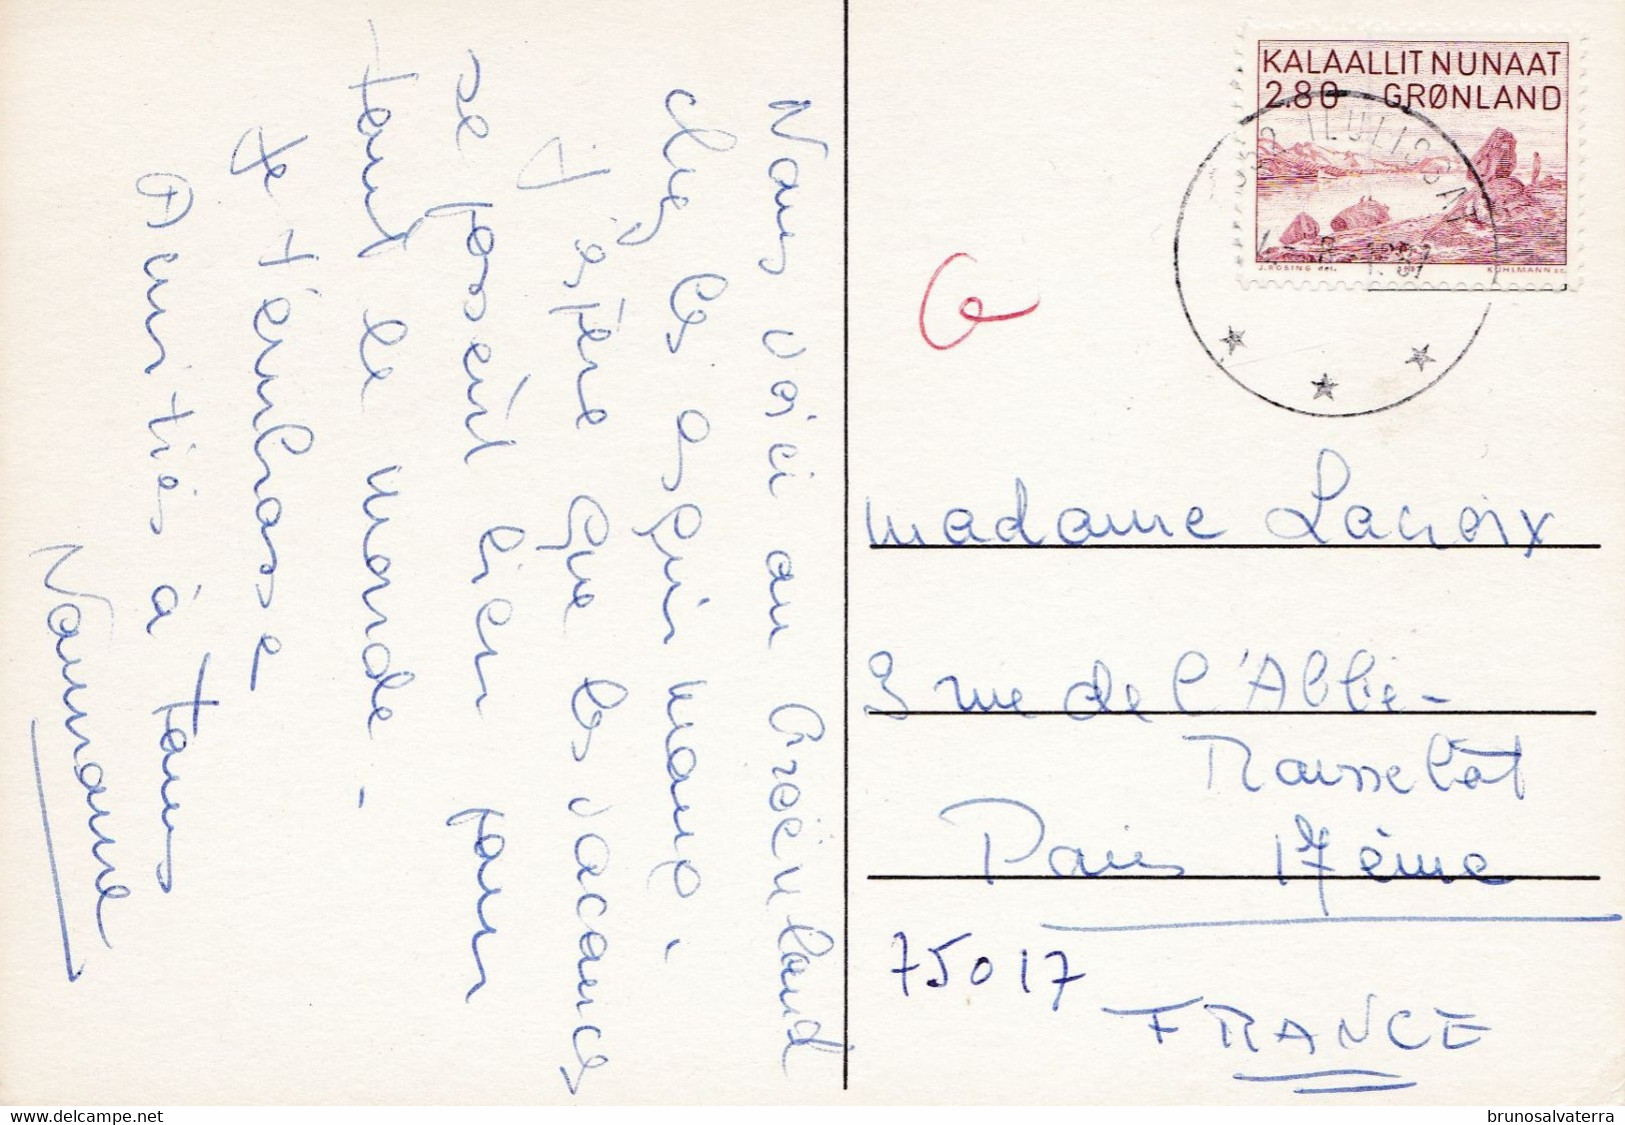 Nous voici au Groënland
chez les esquimaux.
J'espère que les vacances
se passent bien pour
tout le monde.
Je t'embrasse
Amitiés à tous
KALAALLIT NUNAAT
2.80 GRØNLAND
J. ROSING del. KÜHLMANN sc.
ILULISSAT
madame Lacroix
3 rue de l'Abbé-
Rousselot
Paris 17ème
75017
FRANCE
www.delcampe.net
brunosalvaterra